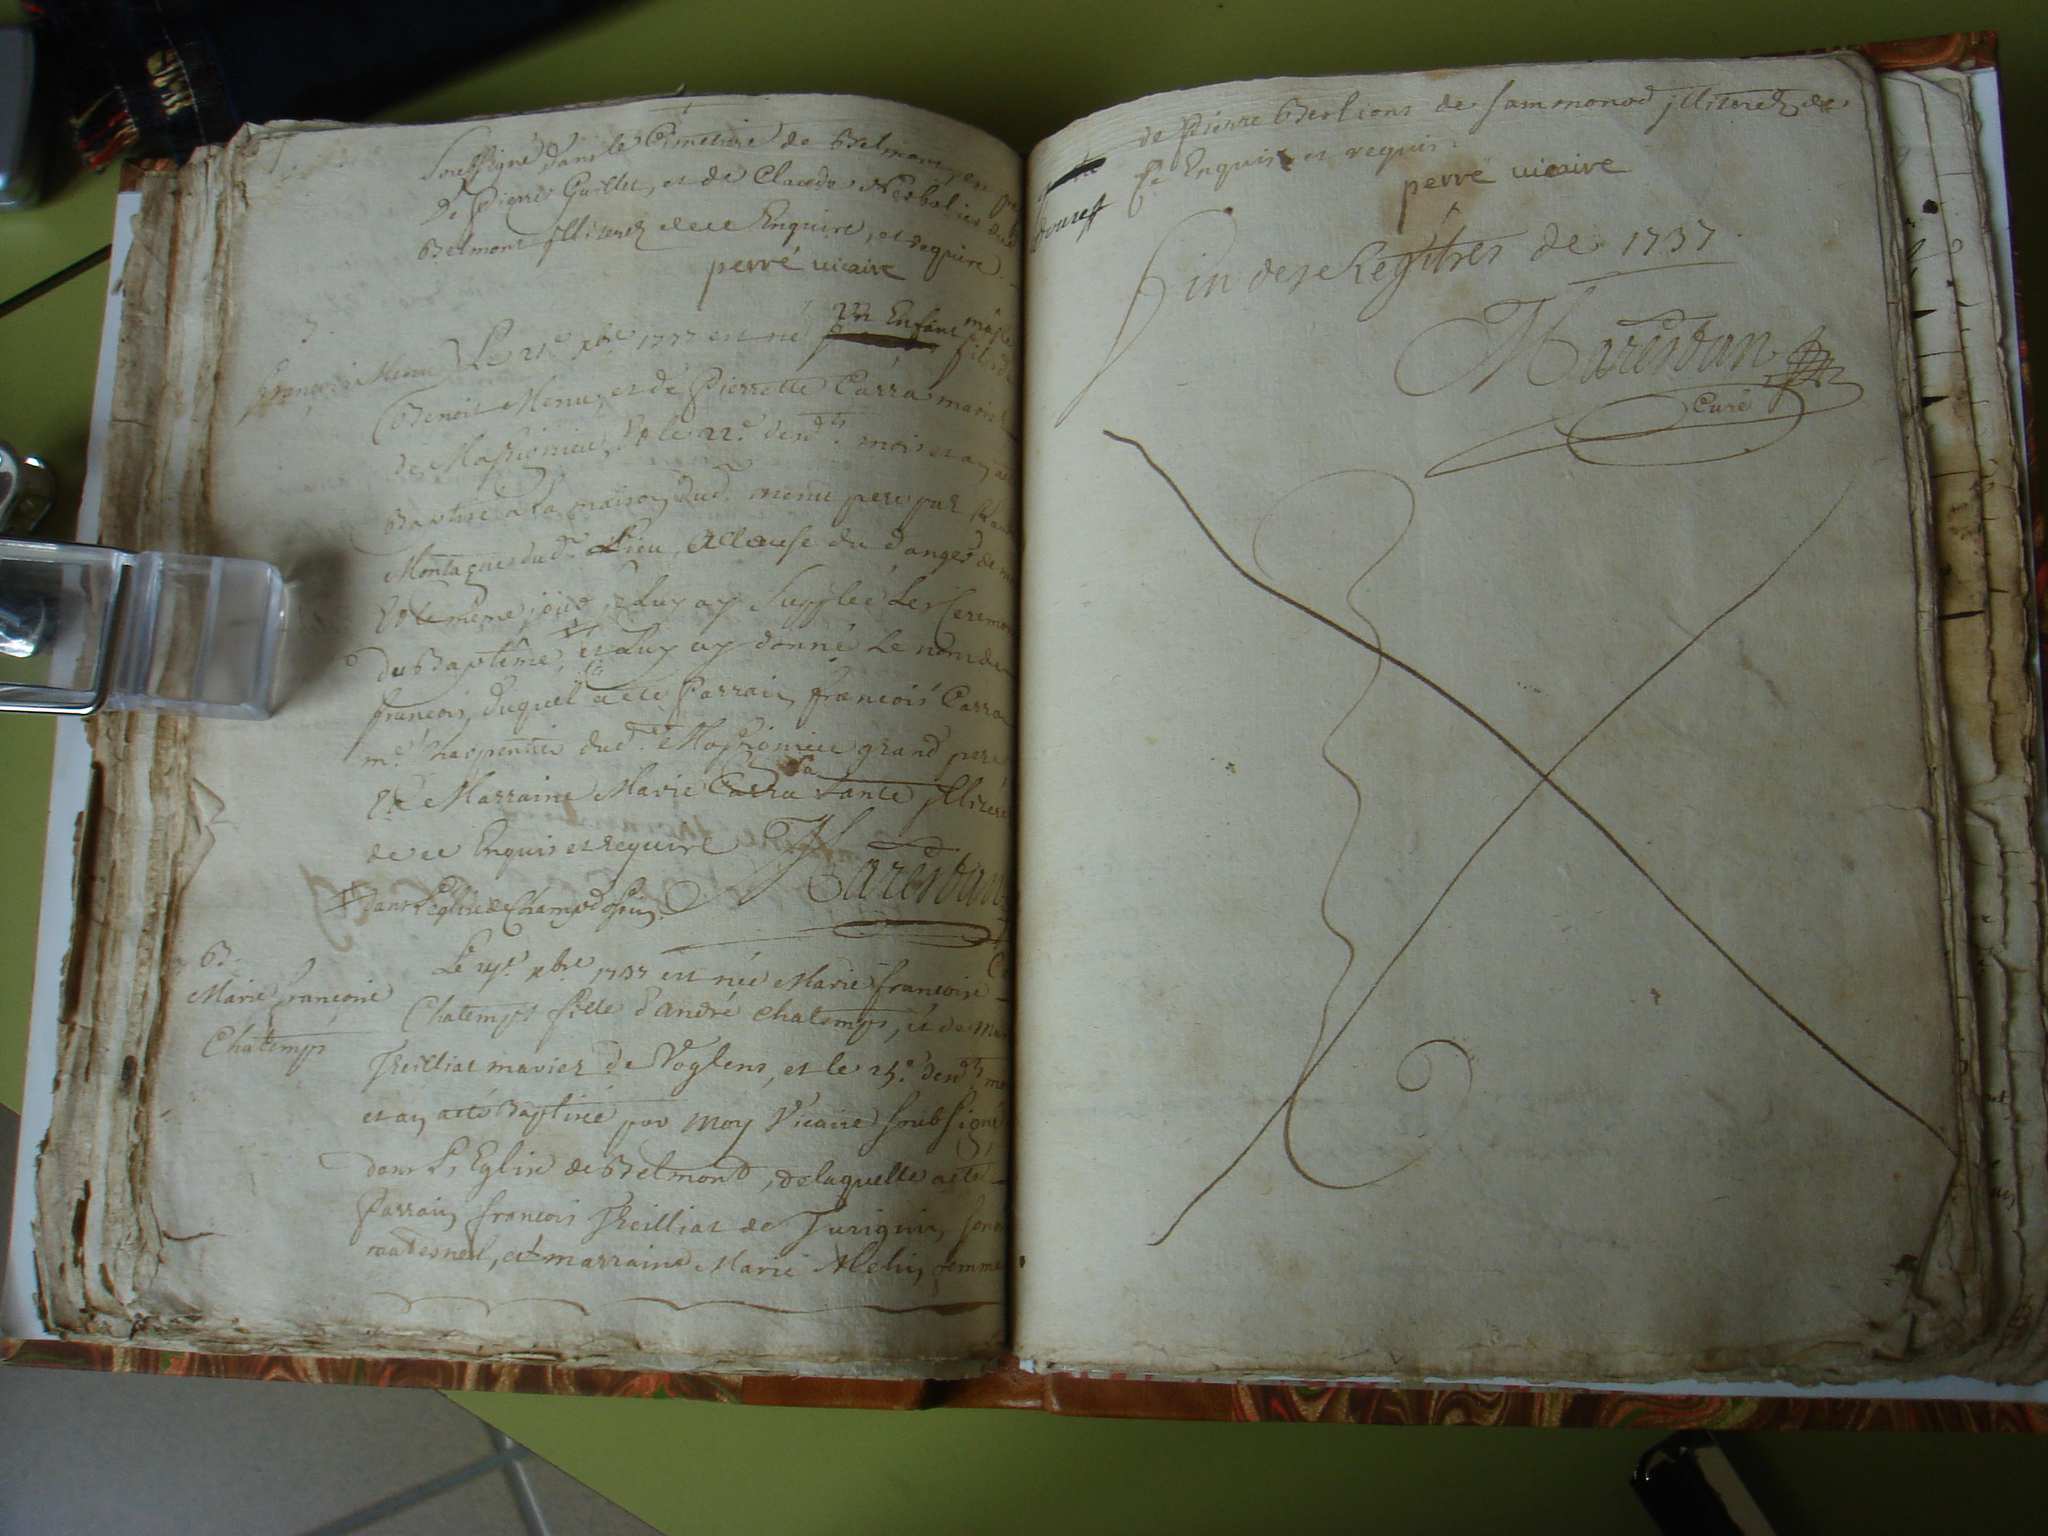 Soussigné dans le Cimetiere de Belmont, en
De Pierre Guillet, et de Claude
Belmont illiterez de ce Enquire, et require.
perré vicaire
François Menu
Le 21e xbre 1737 est né un Enfant mâsle fils de
Benoit Menu, et de Pierrette Carra mariez
de Massonieu, & le 22e desd. mois et an a été
Baptisé a la maison dud. menu pere par
Montagne dud. Lieu, a Cause du danger de
Et le même jour, Luy ay Supplée Les Ceremon
du Baptême, # et Luy ay donné Le nom de
françois, duquel a été Parrain françois Carra
me Charpentier dud. Massonieu grand pere
Et Marraine Marie Carra sa tante illitere
de ce Enquis et require
Marestan
# dans L'eglise de Champdossin.
B.
Marie françoise
Chatemps
Le 24e xbre 1737 est née Marie françoise
Chatemps fille d'andré Chatemps, et de
Treilliat mariez de Voglens, et le 25e desd. mo
et an a eté Baptisée par moy Vicaire soubsigné
dans L'Eglise de Belmond, de laquelle a eté
Parrain françois Treilliat de Turignin, son
maternel, et marraine Marie femme
de Pierre Berlioni de Sammonod illiterez de
Ce Enquis et requis.
perré vicaire
Fin des Regîtres de 1737.
Marestan
Curé